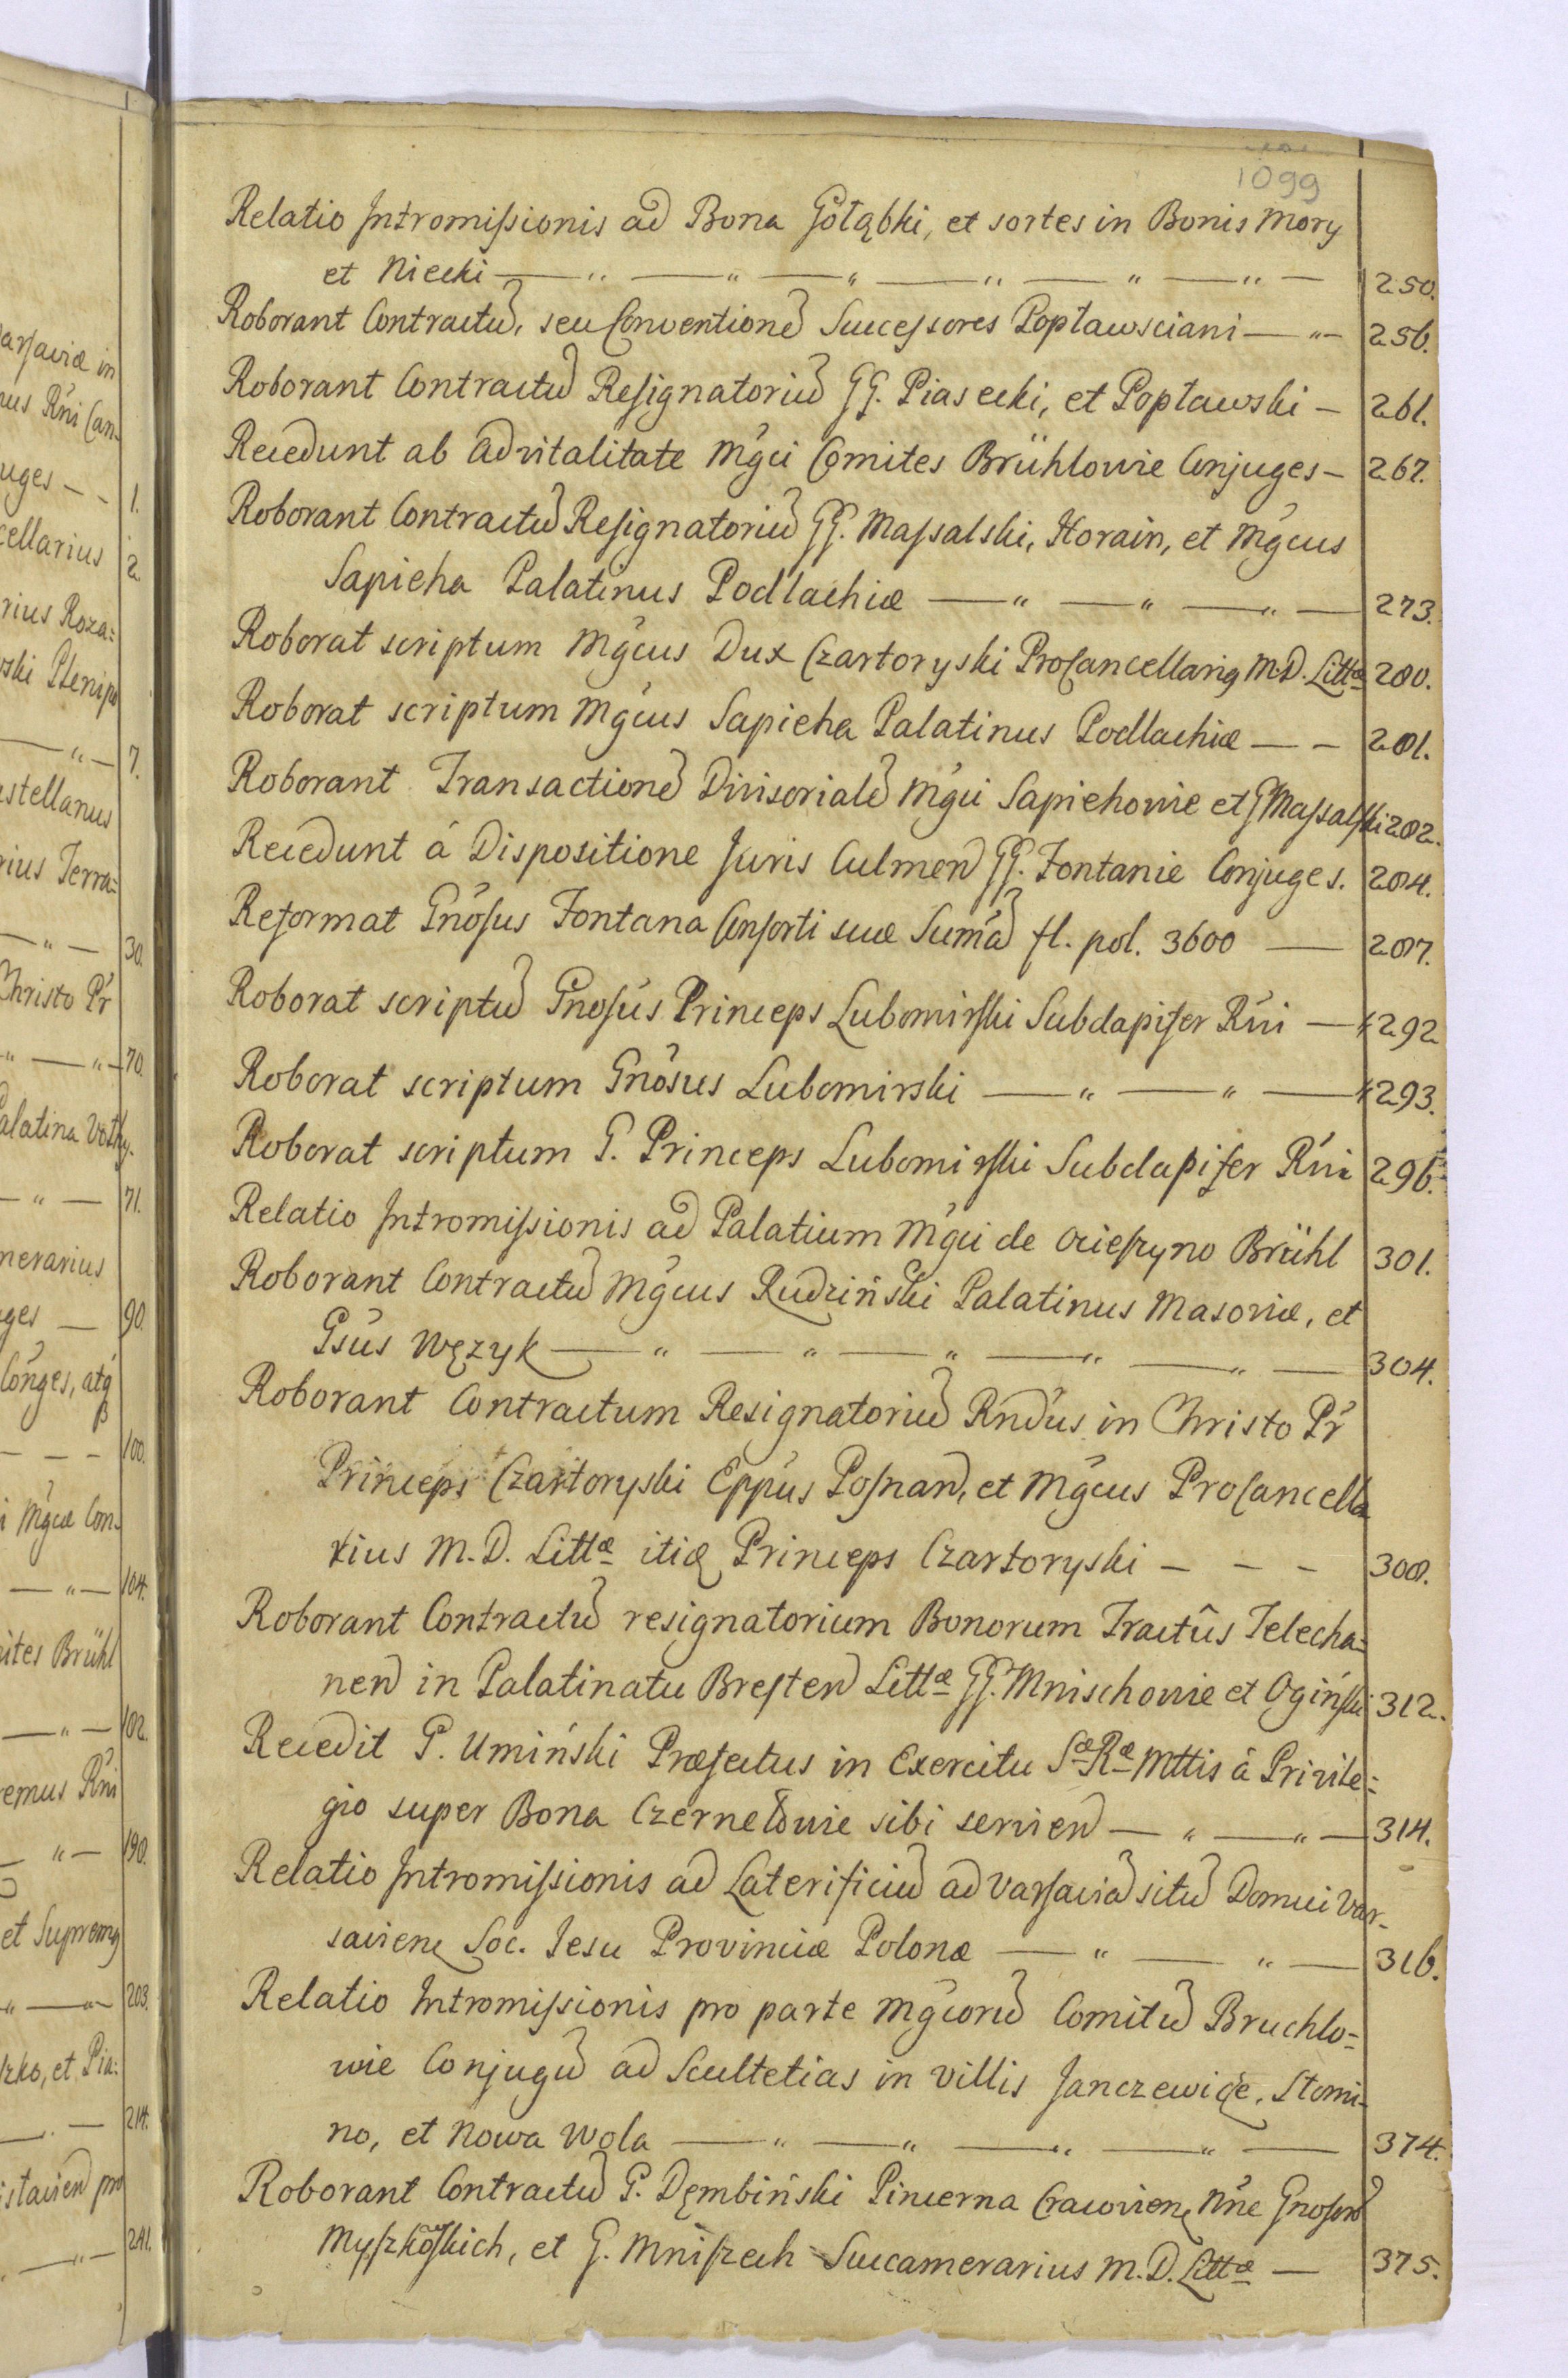 1099
Relatio Intromissionis ad Bona Gołąbki, et sortes in Bonis Mory
et Niecki — " — " — " — " — " — " — 250.
Roborant Contractu͂, seu Conventione͂ Successores Popławsciani — " — 256.
Roborant Contractu͂ Resignatoriu͂ GG. Piasecki, et Popławski — 261.
Recedunt ab advitalitate Mg̃ci Comites Brühlowie Conjuges — 267.
Roborant Contractu͂ Resignatoriu͂ GG. Massalski, Horain, et Mg̃cus
Sapieha Palatinus Podlachiæ — " — " — " — 273.
Roborat scriptum Mg̃cus Dux Czartoryski ProCancellariꝰ M.D. Littæ 280.
Roborat scriptum Mg̃cus Sapieha Palatinus Podlachiæ — — 281.
Roborant Transactione͂ Divisoriale͂ Mg̃ci Sapiehowie et G Massalski 282.
Recedunt á Dispositione Juris Culmen͂ GG. Fontanie Conjuges. 284.
Reformat Gnõsus Fontana Consorti suæ Sum̃a͂ fl. pol. 3600 — 287.
Roborat scriptu͂ Gnosũs Princeps Lubomirski Subdapifer Rñi — 292
Roborat scriptum Gnõsus Lubomirski — " — " — 293.
Roborat scriptum G. Princeps Lubomirski Subdapifer Rñi 296.
Relatio Intromissionis ad Palatium Mg̃ci de Ocieszyno Brühl 301.
Roborant Contractu͂ Mg̃cus Rudziński Palatinus Masoviæ, et
Gsũs Wężyk — " — " — " — " — " — 304.
Roborant Contractum Resignatoriu͂ Rñdus in Christo Pr̃
Princeps Czartoryski Epp̃us Posnan͂, et Mg̃cus ProCancella
rius M.D. Littæ itiꝫ Princeps Czartoryski — — — 308.
Roborant Contractu͂ resignatorium Bonorum Tractûs Telecha=
nen͂ in Palatinatu Bresten͂ Littæ GG. Mnischowie et Ogiński 312.
Recedit G. Umiński Præfectus in Exercitu Sæ Ræ Mttis á Privile=
gio super Bona Czernelowie sibi servien͂ — " — " — 314.
Relatio Intromissionis ad Laterificiu͂ ad Varsavia͂ situ͂ Domui Var-
savien͂ Soc. Jesu Provinciæ Polonæ — " — " — 316.
Relatio Intromissionis pro parte Mg̃coru͂ Comitu͂ Bruchlo=
wie Conjugu͂ ad Scultetias in villis Janczewice, Stomi-
no, et Nowa Wola — " — " — " — " — 374.
Roborant Contractu͂ G. Dęmbiński Pincerna Cracovien͂ Nñe Gnosoru͂
Myszkowskich, et G. Mniszech Succamerarius M.D. Littæ — 375.